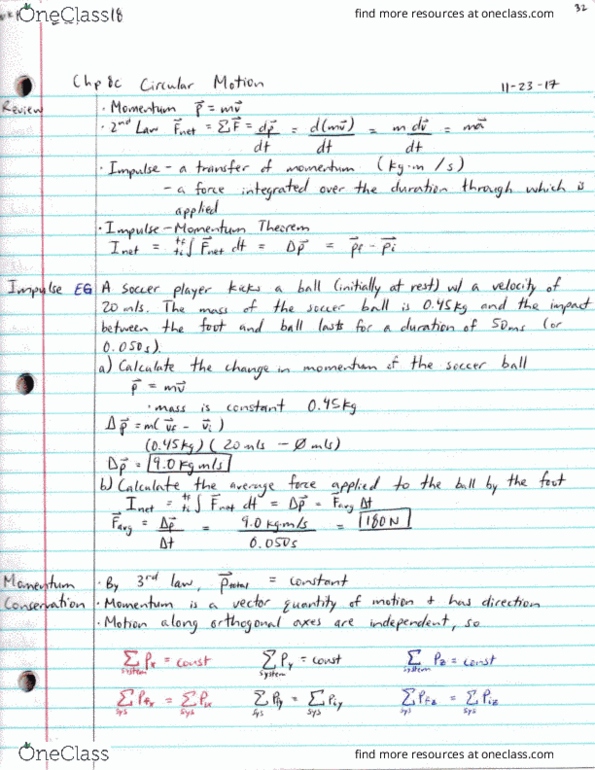 OneClass18
find more resources at oneclass.com
32
Chp 8c Circular Motion
11-23-17
Review
· Momentum p⃗ = mv⃗
· 2nd Law F⃗net = ΣF⃗ = dp⃗/dt = d(mv⃗)/dt = m dv⃗/dt = ma⃗
· Impulse - a transfer of momentum (kg·m/s)
- a force integrated over the duration through which is
applied
· Impulse-Momentum Theorem
Inet = ti∫tf F⃗net dt = Δp⃗ = p⃗f - p⃗i
Impulse EG
A soccer player kicks a ball (initially at rest) w/ a velocity of
20 m/s. The mass of the soccer ball is 0.45kg and the impact
between the foot and ball lasts for a duration of 50ms (or
0.050s).
a) Calculate the change in momentum of the soccer ball
p⃗ = mv⃗
· mass is constant 0.45kg
Δp⃗ = m(v⃗f - v⃗i)
(0.45kg)(20 m/s - Ø m/s)
Δp⃗ = 9.0 kg m/s
b) Calculate the average force applied to the ball by the foot
Inet = ti∫tf F⃗net dt = Δp⃗ = F⃗avg Δt
F⃗avg = Δp⃗/Δt = 9.0 kg·m/s / 0.050s = 180N
Momentum
Conservation
· By 3rd law, p⃗total = constant
· Momentum is a vector quantity of motion + has direction
· Motion along orthogonal axes are independent, so
Σsystem Px = const Σsystem Py = const Σsystem Pz = const
Σsys Pfx = Σsys Pix Σsys Pfy = Σsys Piy Σsys Pfz = Σsys Piz
OneClass
find more resources at oneclass.com